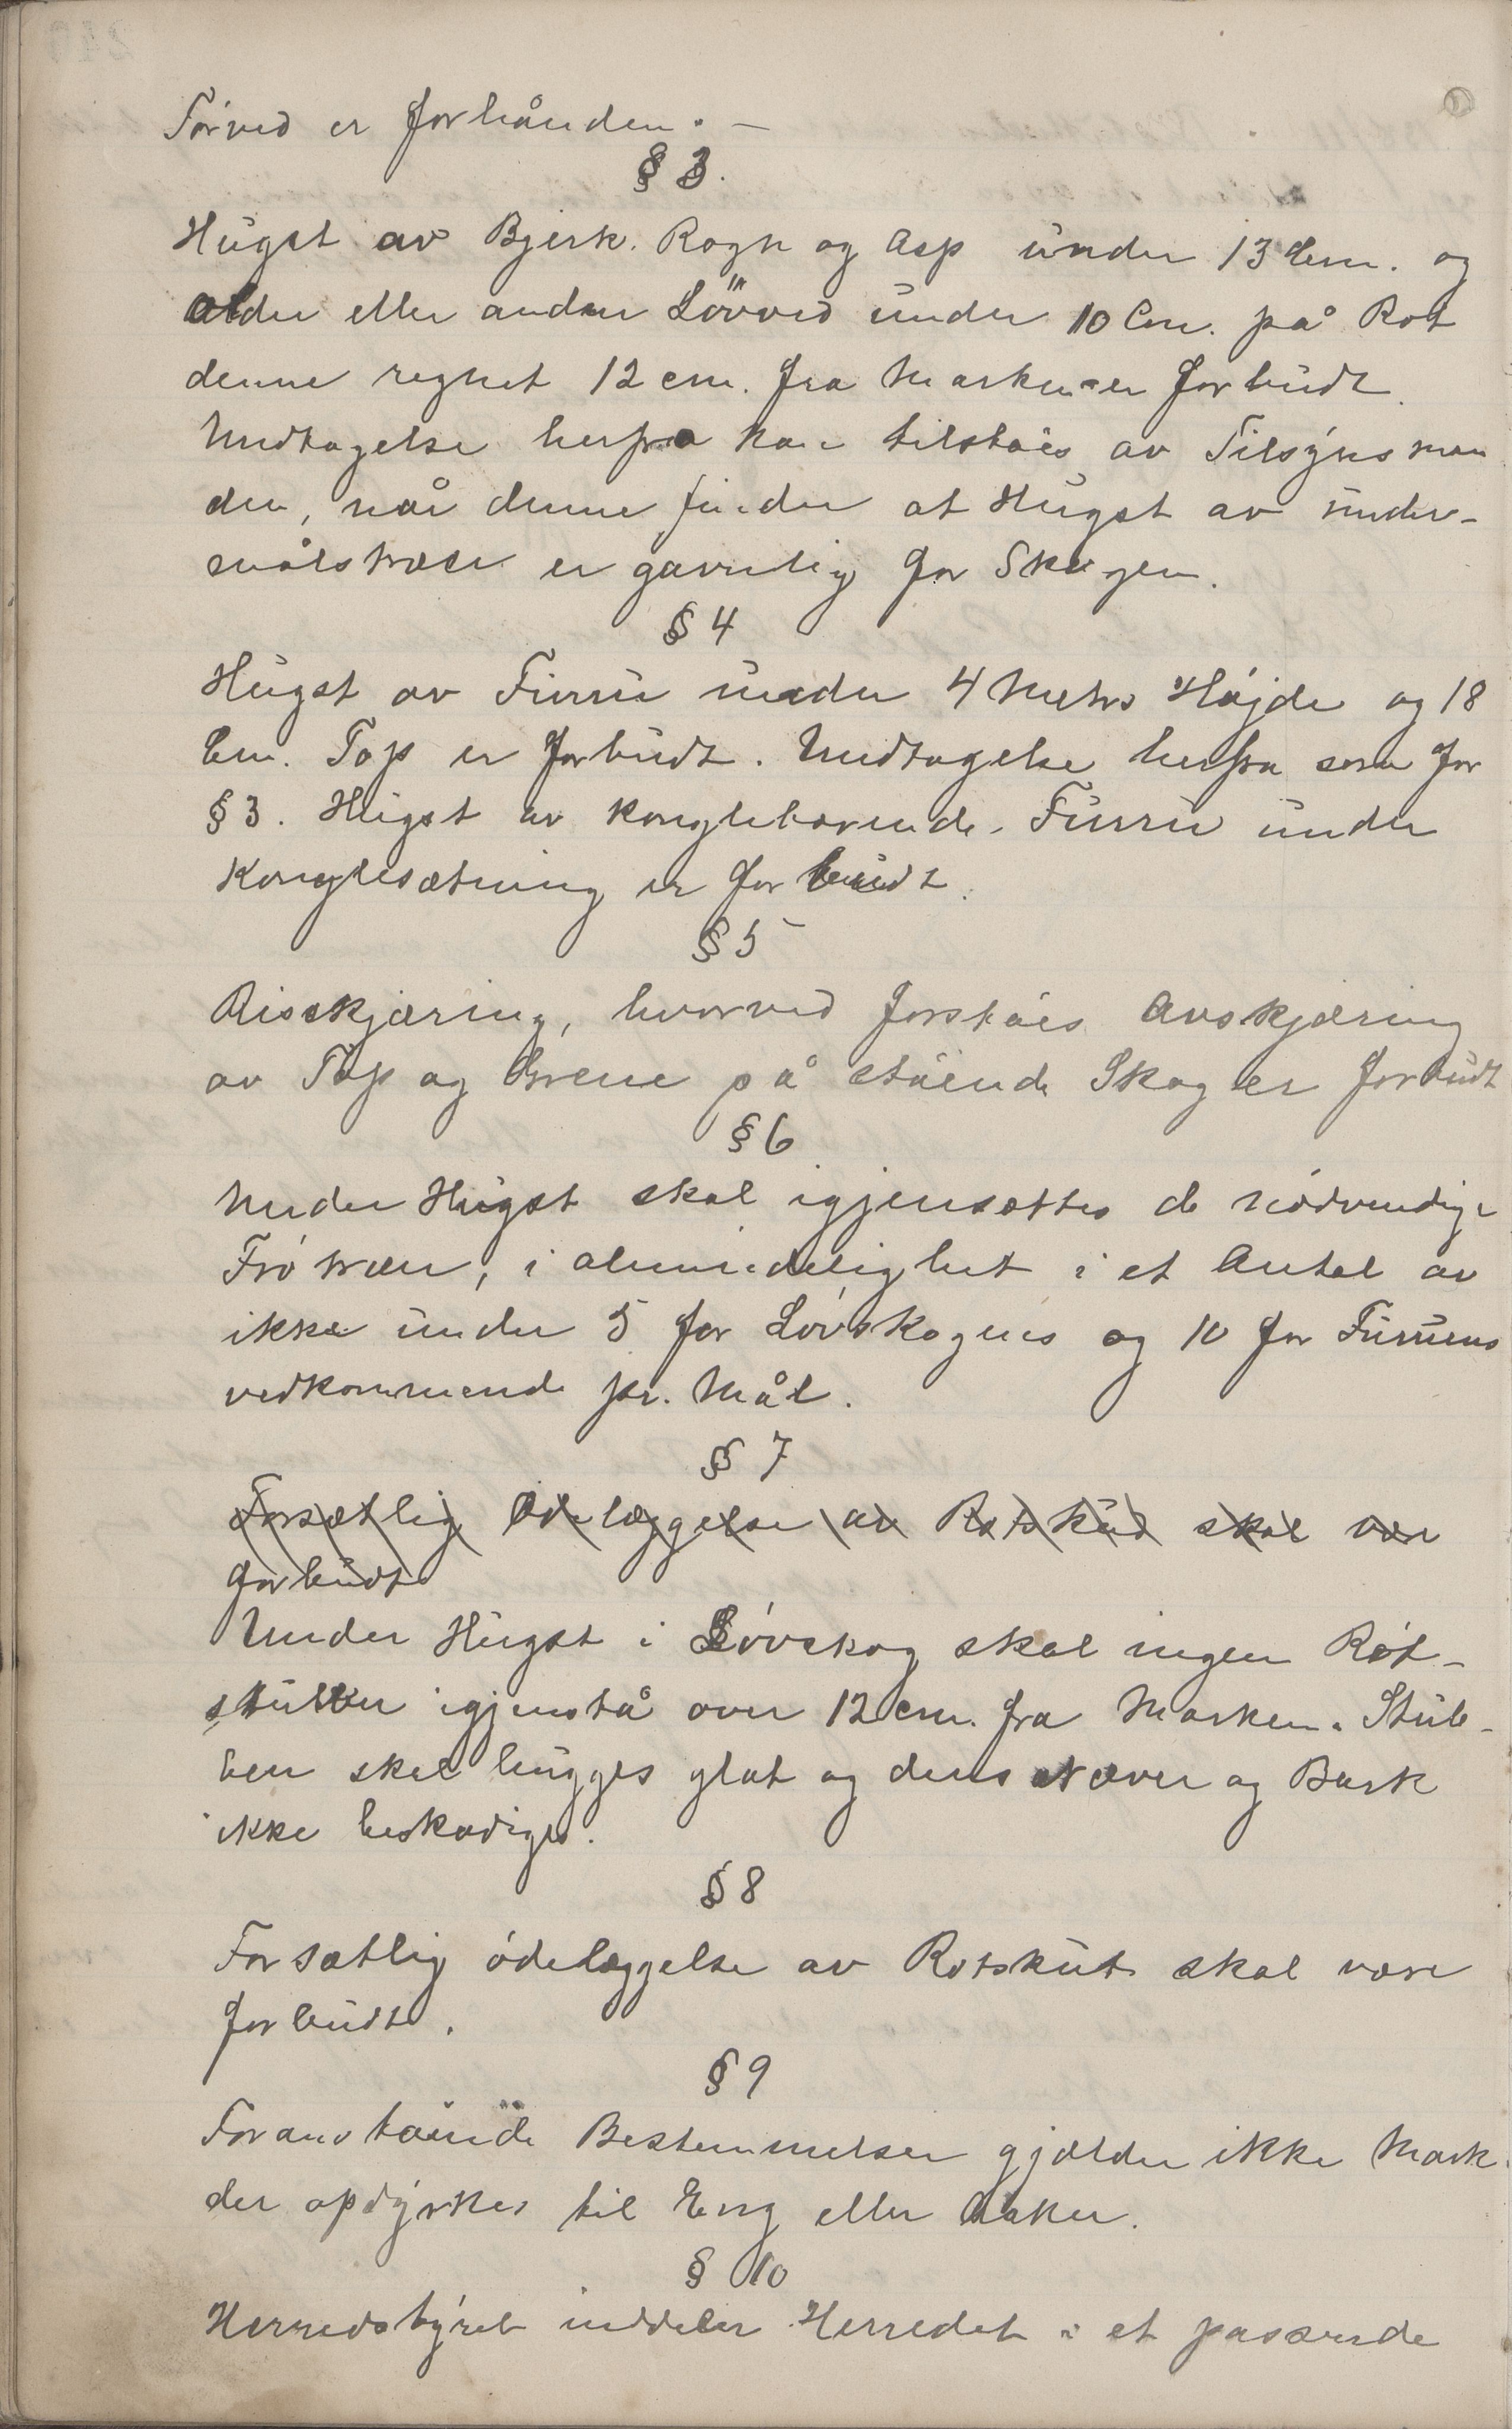 Tørved er forhånden. —
§ 3.
Hugst av Bjerk. Rogn og Asp under 13 Cem. og
Older eller anden Løvved under 10 Cm. på Rot
denne regnet 12 cm. fra Marken er forbudt.
Undtagelse herfra kan tilståes av Tilsynsman
den, når denne finder at Hugst av under-
målstræer er gavnlig for Skogen.
§ 4
Hugst av Furru under 4 Meters Højde og 18
Cm. Top er forbudt. Undtagelse herfra som for
§ 3. Hugst av konglebærende Furru under
Konglesætning er forbudt.
§ 5
Risskjæring, hvorved forståes Avskjæring
av Top og Grene på stående Skog er forbudt
§ 6
Under Hugst skal igjensættes de nødvendige
Frøtræer, i almindelighet i et Antal av
ikke under 5 for Løvskogens og 10 for Furruens
vedkommende pr. Mål.
§ 7
Forsætlig Ødelæggelse av Rotskud skal være
forbudt
Under Hugst i Løvskog skal ingen Rot-
stubber igjenstå over 12 cm. fra Marken. Stub-
ben skal hugges glat og dens Næver og Bark
ikke beskadiges.
§ 8
Forsætlig ødelæggelse av Rotskut skal være
forbudt.
§ 9
Foranstående Bestemmelser gjælder ikke Mark
der opdyrkes til Eng eller Aaker.
§ 10
Herredstyret inddeler Herredet i et passende